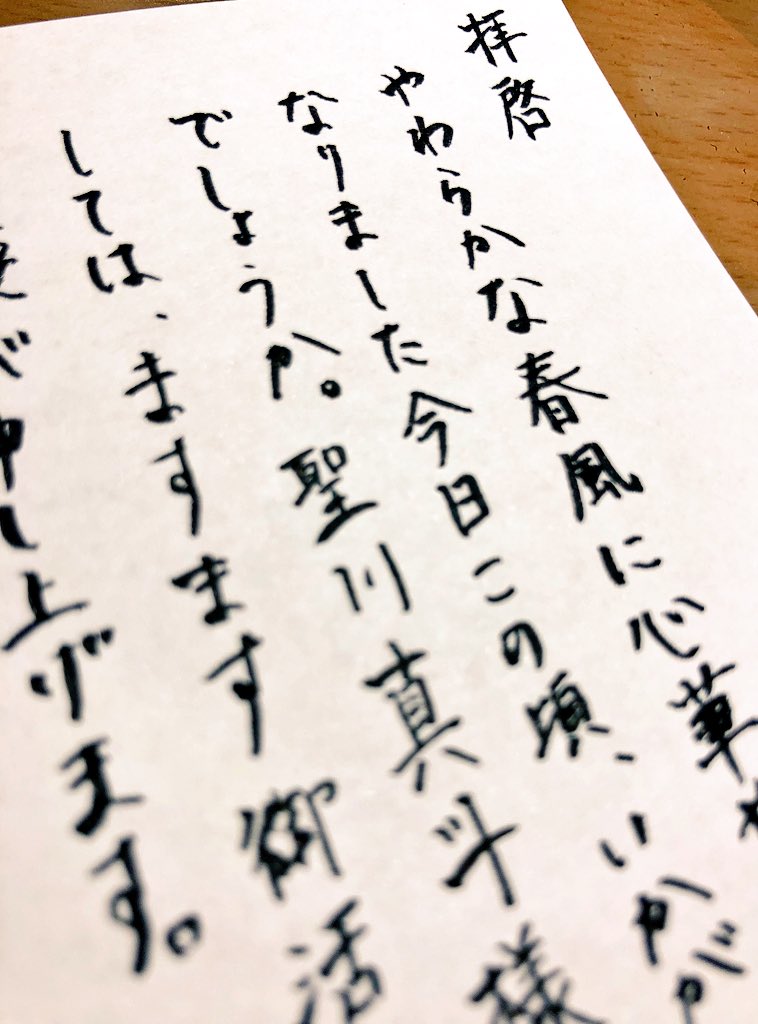 拝啓
やわらかな春風に心華や
なりました今日この頃、いかが
でしょうか。聖川真斗様
しては、ますます御活
申し上げます。